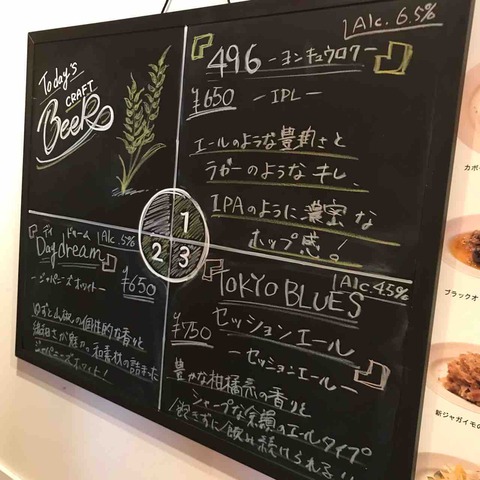 Today's
CRAFT
BeeR
『496 -ヨンキュウロク-』
Alc. 6.5%
¥650 -IPL-
エールのような豊潤さと
ラガーのようなキレ、
IPAのように濃密な
ホップ感!
1
2
3
『Daydream』
デイ ドリーム
Alc. 5%
-ジャパニーズホワイト-
¥650
ゆずと山椒の個性的な香りと
和素材の詰まった
ジャパニーズホワイト!
『TOKYO BLUES
Alc. 4.5%
セッションエール
¥750 -セッションエール-』
豊かな柑橘系の香りと
シャープな苦味のエールタイプ
飽きずに飲み続けられる!!
ブラックオ
新ジャガイモの